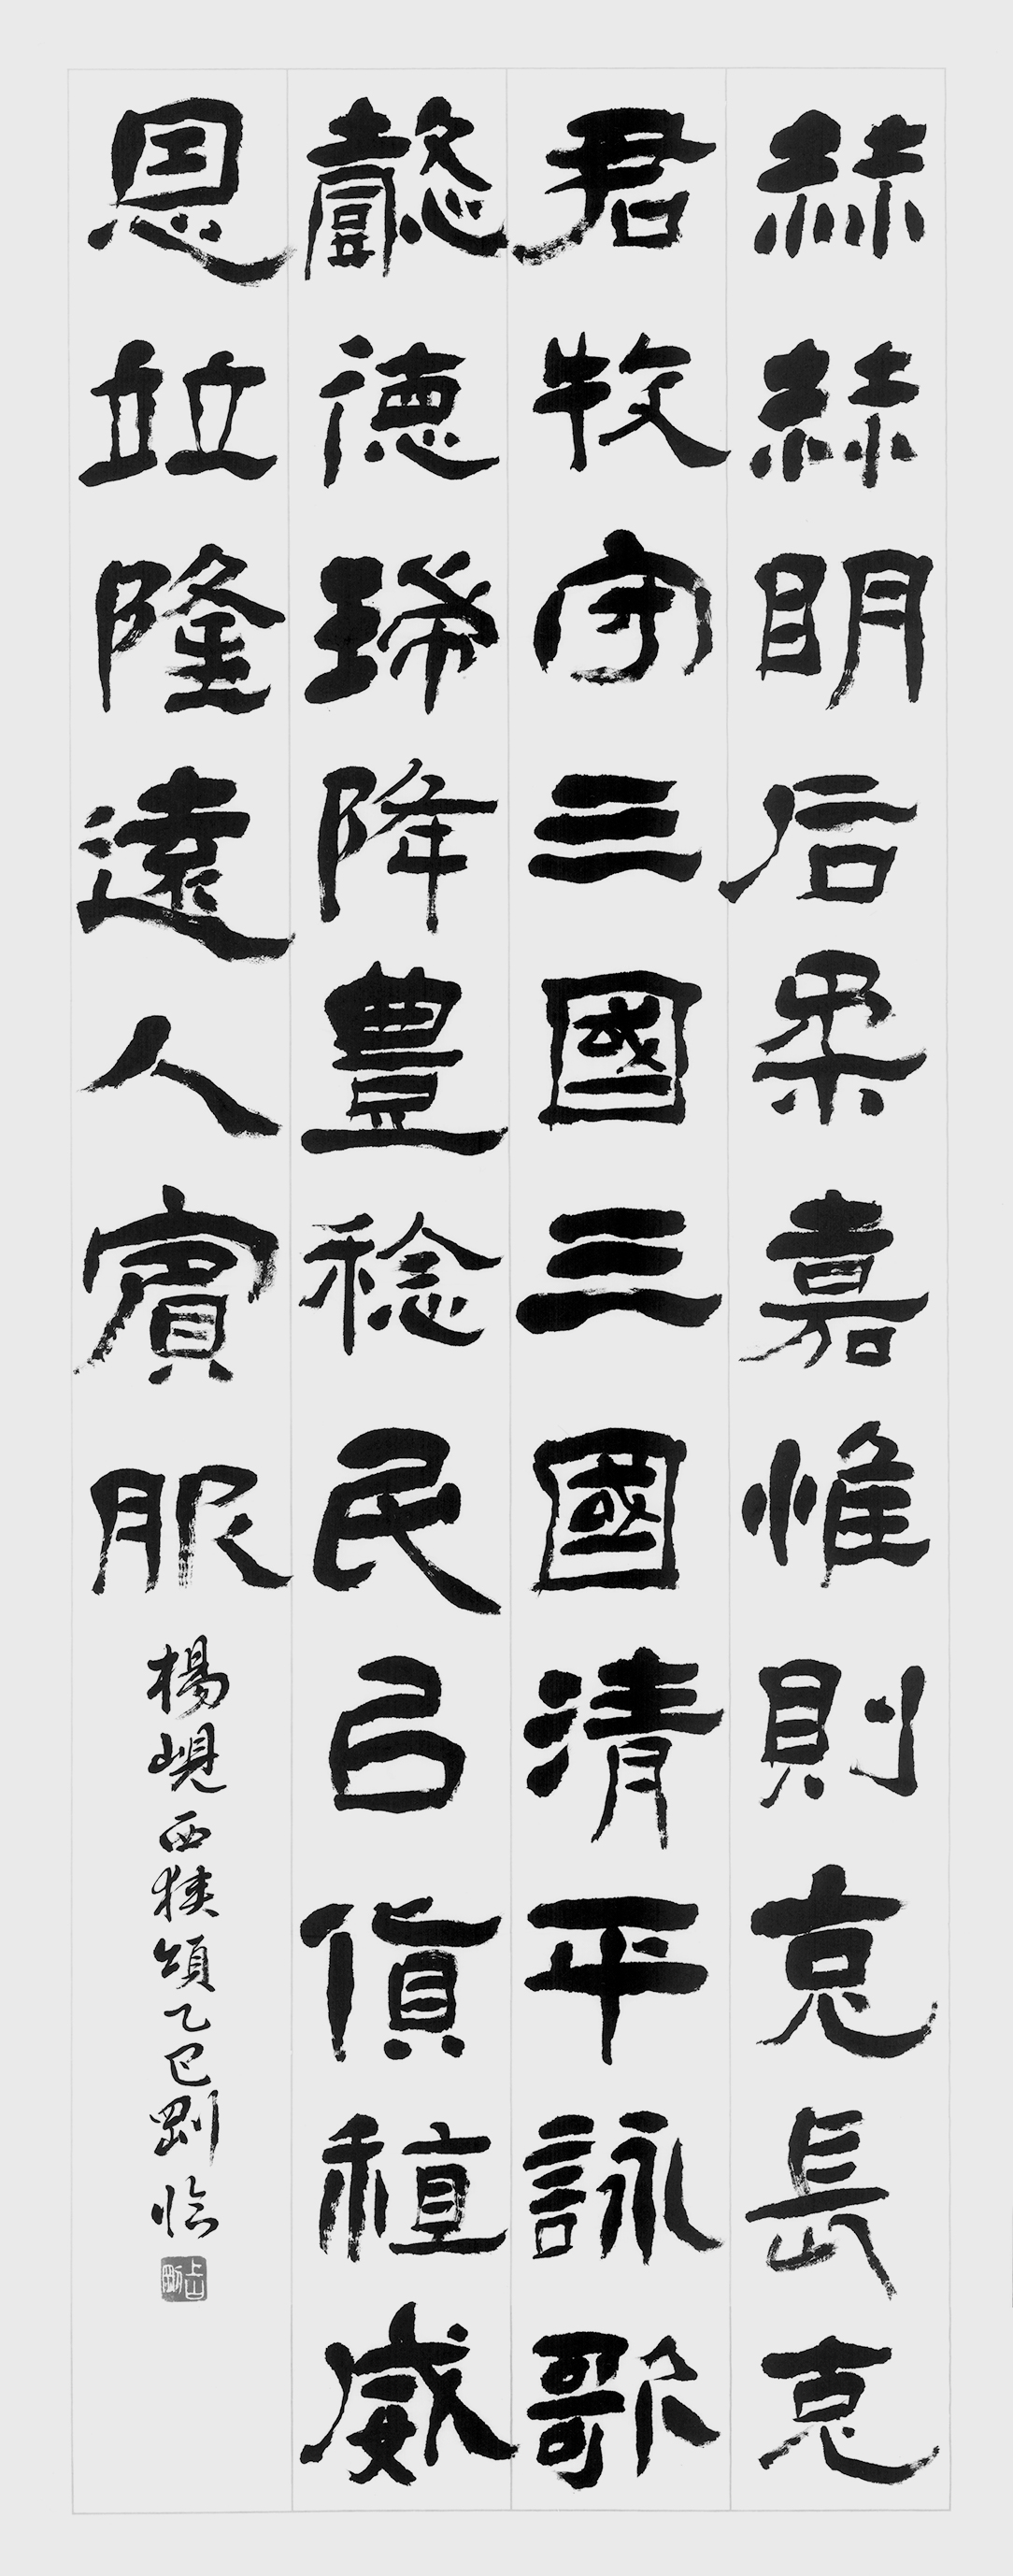 赫赫明后柔嘉惟則克長克
君牧守三國三國清平詠歌
懿德瑞降豊稔民㠯貨稙威
恩竝隆遠人賓服
楊峴西狹頌乙巳剛臨